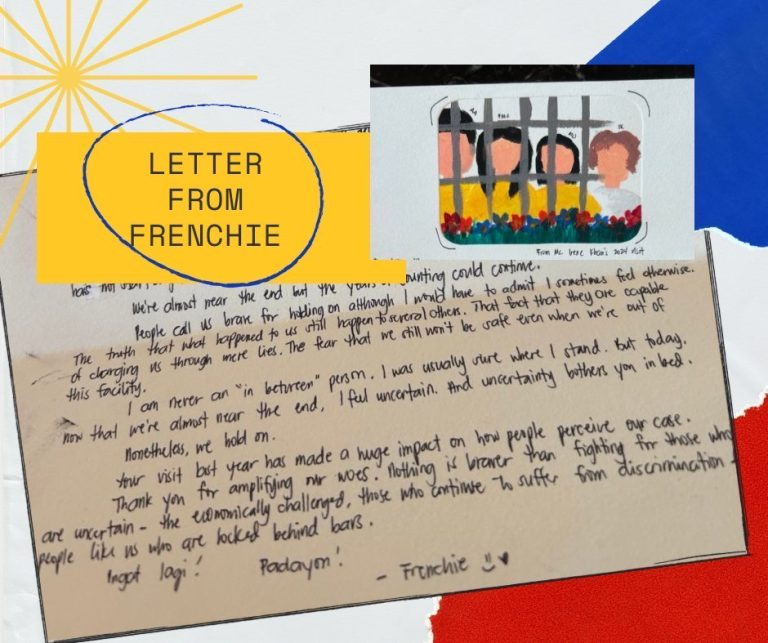 LETTER
FROM
FRENCHIE
From Ms. Irene Khan's 2024 visit
has not
We're almost near the end but the years of counting could continue.
People call us brave for holding on although I would have to admit I sometimes feel otherwise.
The truth that what happened to us still happen to several others. That fact that they are capable
of charging us through mere lies. The fear that we still won't be safe even when we're out of
this facility.
I am never an "in between" person. I was usually sure where I stand. But today,
now that we're almost near the end, I feel uncertain. And uncertainty bothers you in bed.
Nonetheless, we hold on.
Your visit last year has made a huge impact on how people perceive our case.
Thank you for amplifying our voices. Nothing is braver than fighting for those who
are uncertain - the economically challenged, those who continue to suffer from discrimination -
people like us who are locked behind bars.
Ingat lagi! Padayon!
- Frenchie